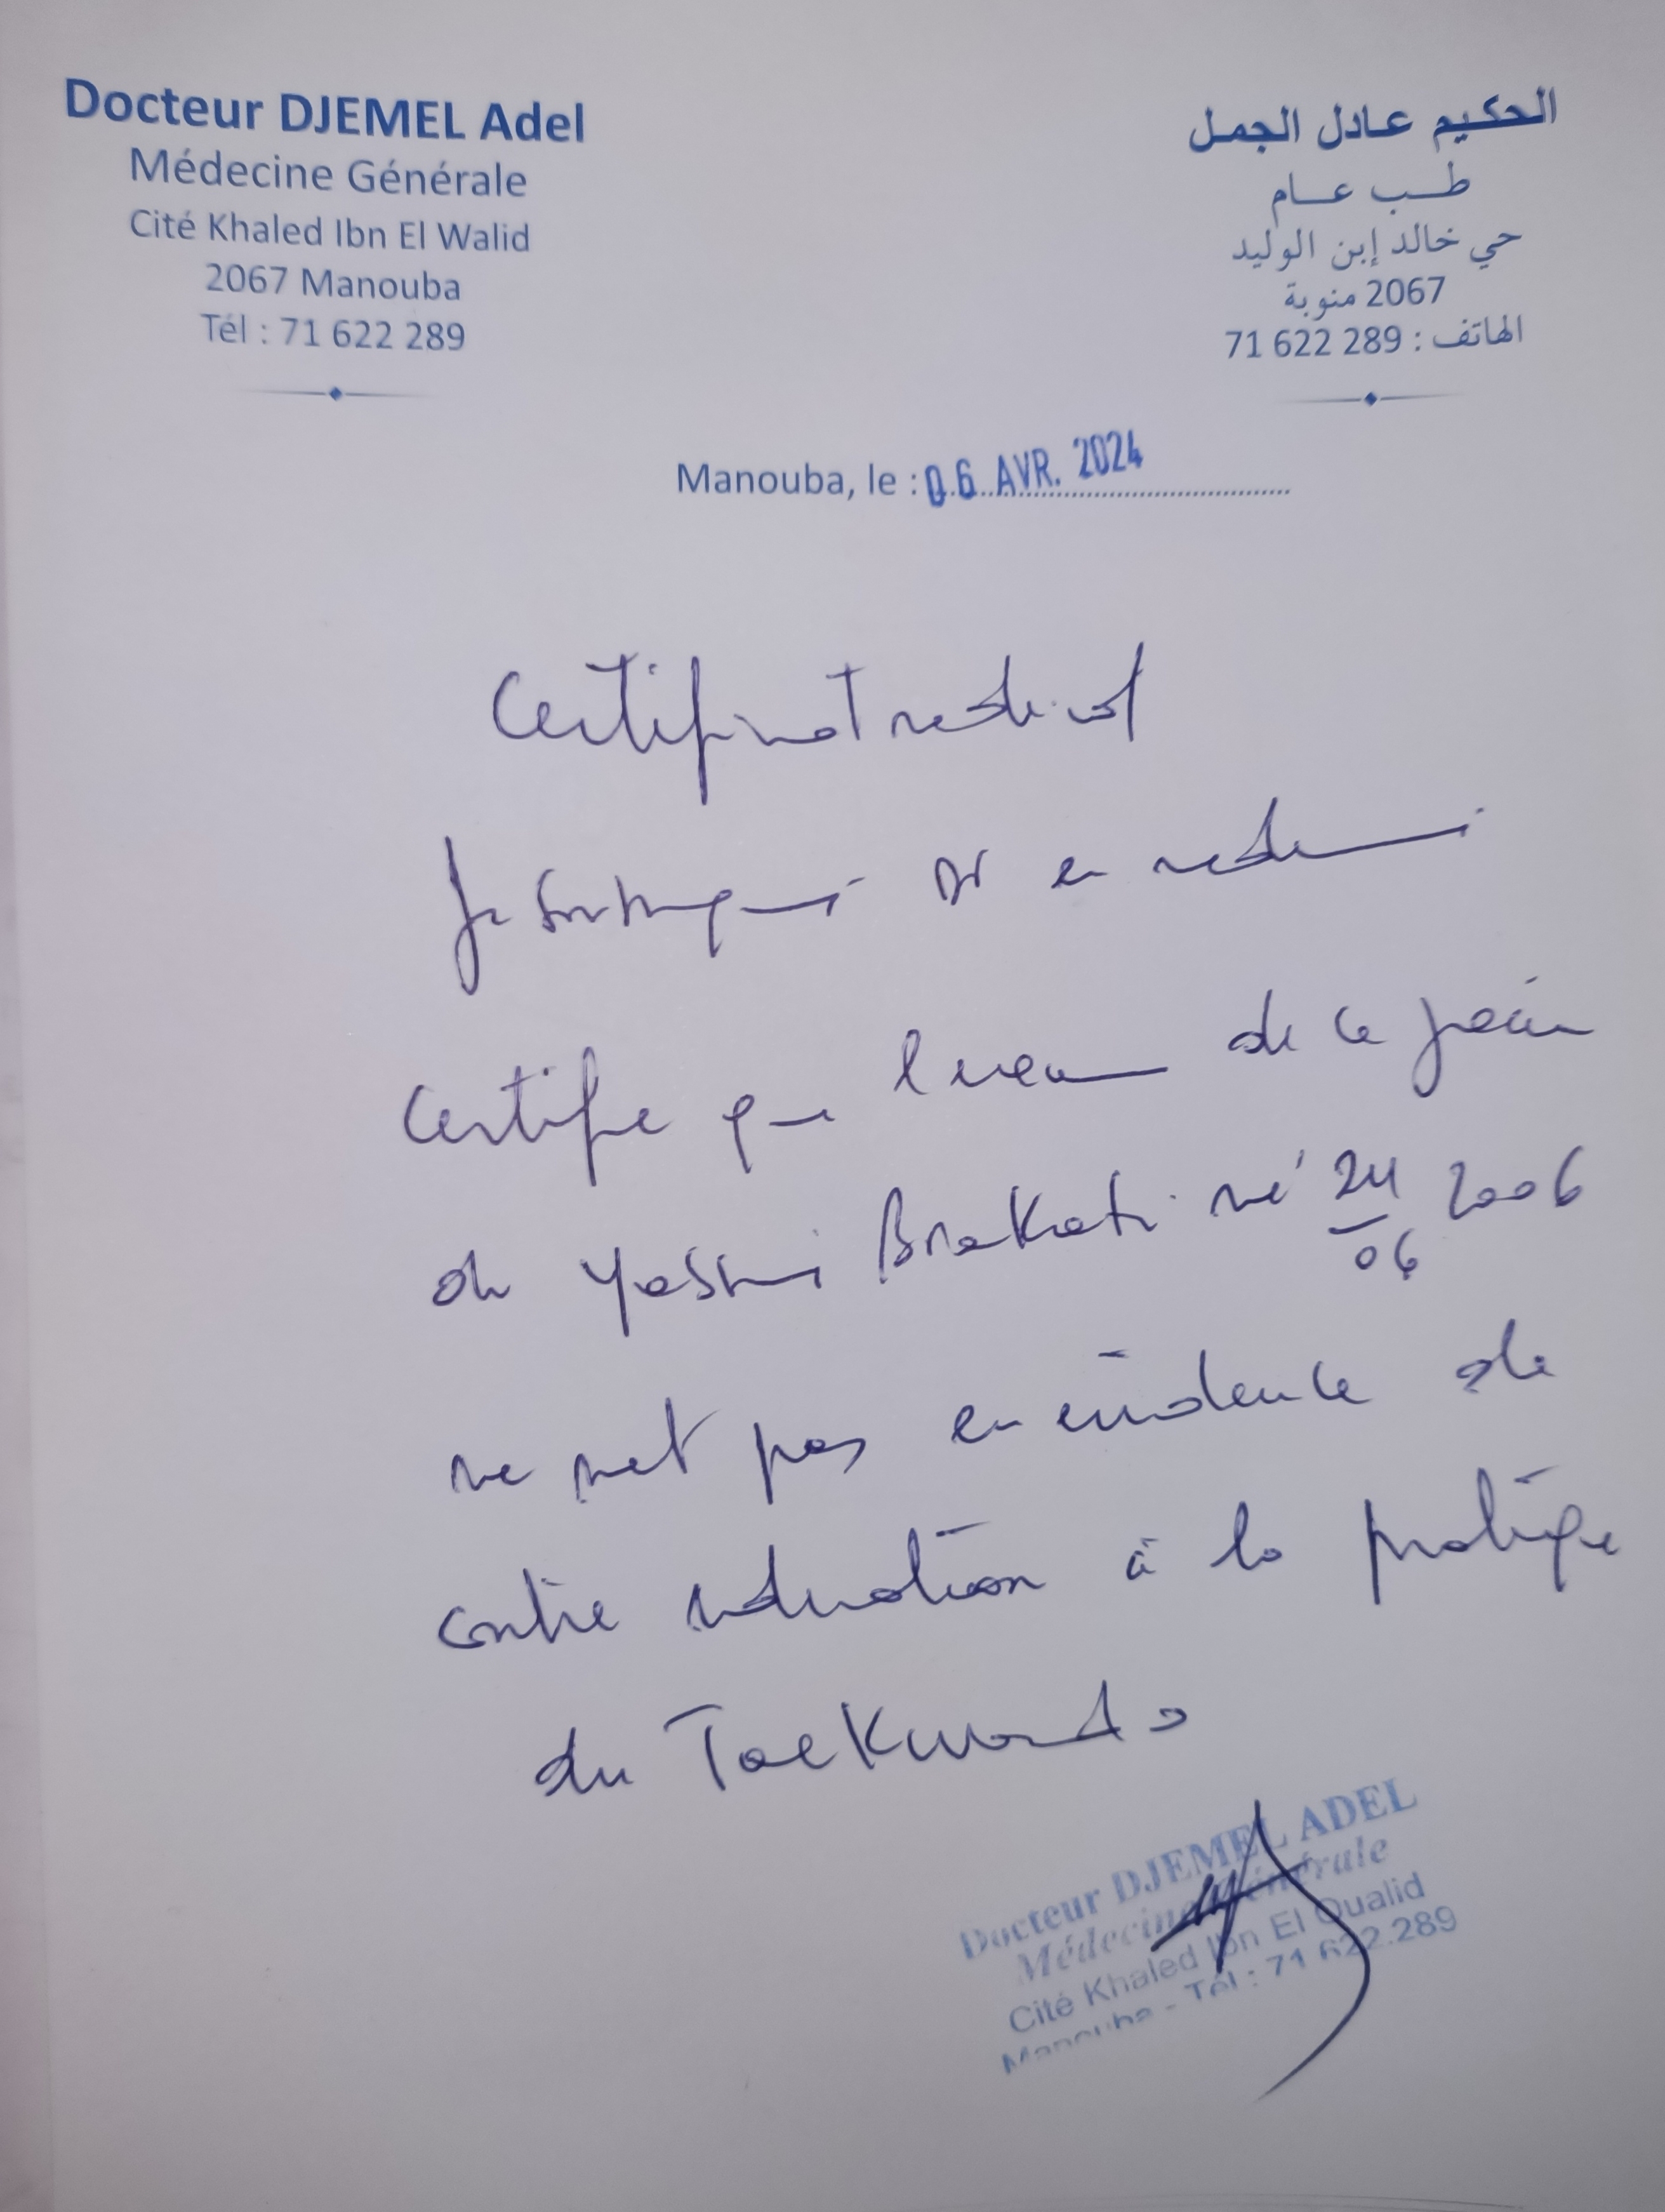 Docteur DJEMEL Adel
Médecine Générale
Cité Khaled Ibn El Walid
2067 Manouba
Tél : 71 622 289
الحكيم عادل الجمل
طب عام
حي خالد إبن الوليد
2067 منوبة
الهاتف : 71 622 289
Manouba, le : 06 AVR. 2024
Certificat medical
Je soussigné Dr en medecine
Certifie que l'examen de ce jour
de Yasmi Brakati né 24/06 2006
ne met pas en évidence de
contre indication à la pratique
du Taekwondo
Docteur DJEMEL ADEL
Médecine Générale
Cité Khaled Ibn El Oualid
Manouba - Tél : 71 622.289